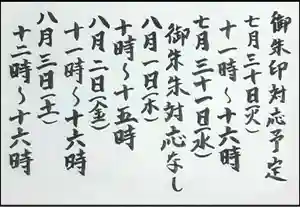 御朱印対応予定
七月三十日(火)
十一時〜十六時
七月三十一日(水)
御朱朱対応なし
八月一日(木)
十時〜十五時
八月二日(金)
十一時〜十六時
八月三日(土)
十二時〜十六時